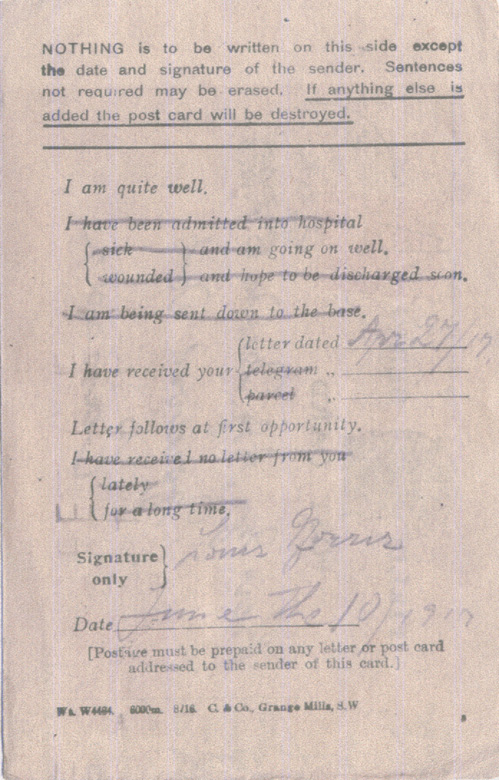 NOTHING is to be written on this side except
the date and signature of the sender. Sentences
not required may be erased. If anything else is
added the post card will be destroyed.
I am quite well.
I have been admitted into hospital
sick and am going on well.
wounded and hope to be discharged soon.
I am being sent down to the base.
letter dated Apr 27/17
I have received your telegram „
parcel „
Letter follows at first opportunity.
I have received no letter from you
lately
for a long time.
Signature
only
Date June the 10/1917
[Postage must be prepaid on any letter or post card
addressed to the sender of this card.]
Wt. W4494. 6000m. 8/16. C. & Co., Grange Mills, S.W